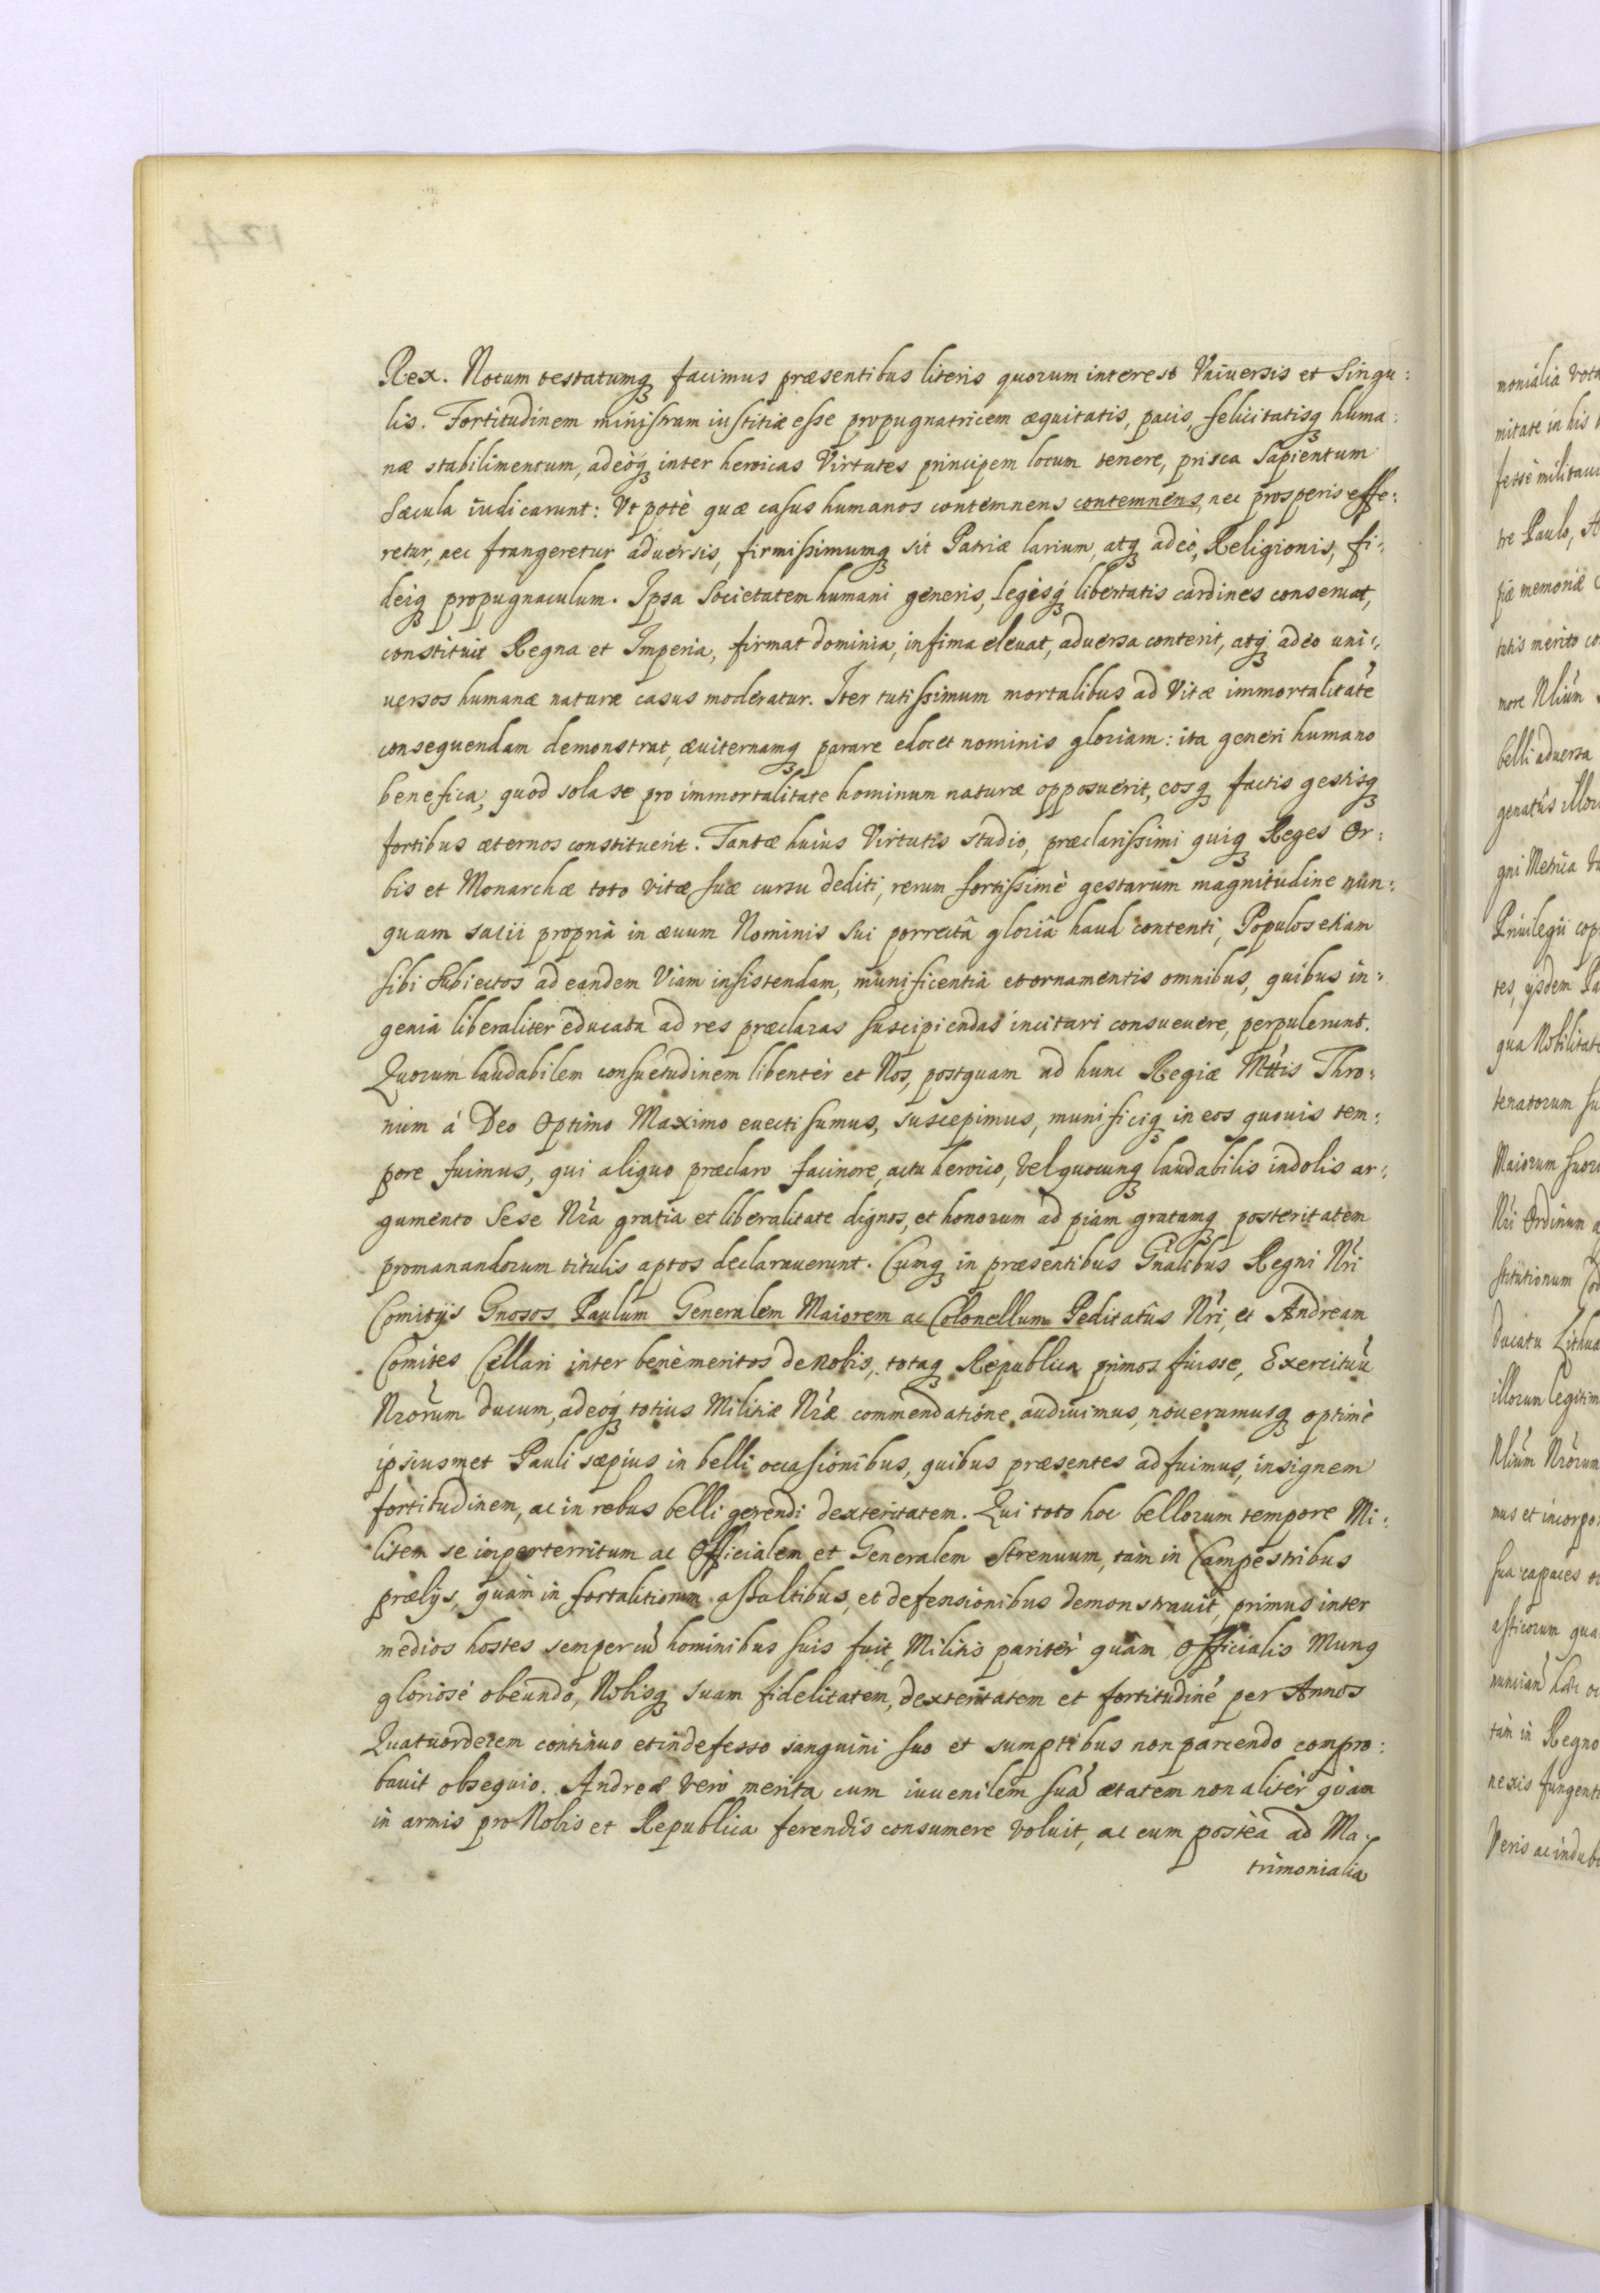 Rex. Notum testatumq facimus præsentibus literis quorum interest Vniuersis et Singu:
lis. Fortitudinem ministram iustitiæ esse propugnatricem æquitatis, pacis, felicitatisq huma:
næ stabilimentum, adeòq inter heroicas Virtutes principem locum tenere, prisca Sapientum
Sæcula iudicarunt: Vt potè quæ casus humanos contemnens contemnens, nec prosperis effe:
retur, nec frangeretur aduersis, firmissimumq sit Patriæ larium, atq adeò, Religionis, fi:
deiq propugnaculum. Ipsa Societatem humani generis, legisq libertatis cardines conseruat,
constituit Regna et Imperia, firmat dominia, infima eleuat, aduersa conterit, atq adeo uni:
uersos humanæ naturæ casus moderatur. Iter tutissimum mortalibus ad Vitæ immortalitatē
consequendam demonstrat, æuiternamq parare edocet nominis gloriam: ita generi humano
benefica, quod sola se pro immortalitate hominum naturæ opposuerit, eosq factis gestisq
fortibus æternos constituerit. Tantæ huius Virtutis studio, præclarissimi quiq Reges Or:
bis et Monarchæ toto vitæ suæ cursu dediti, rerum fortissimè gestarum magnitudine nun:
quam satii propriâ in æuum Nominis Sui porrectâ gloriâ haud contenti, Populos etiam
sibi Subiectos ad eandem Viam insistendam, munificentia et ornamentis omnibus, quibus in:
genia liberaliter educata ad res præclaras suscipiendas incitari consueuere, perpulerunt.
Quorum laudabilem consuetudinem libenter et Nos, postquam ad hunc Regiæ Mttis Thro:
num á Deo Optimo Maximo euecti sumus, suscepimus, munificiq in eos quouis tem:
pore fuimus, qui aliquo præclaro facinore, actu heroico, Vel quocunq laudabilis indolis ar:
gumento Sese Nra gratia et liberalitate dignos, et honorum ad piam gratamq posteritatem
promanandorum titulis aptos declarauerunt. Cumq in præsentibus Gnalibus Regni Nri
Comitijs Gnosos Paulum Generalem Maiorem ac Colonellum Peditatûs Nri, et Andream
Comites Cellari inter benèmeritos de nobis, totaq Republica primos fuisse, Exercituū
Nrorum ducum, adeoq totius Militiæ Nræ commendatione audiuimus, nouerumusq optimè
ipsiusmet Pauli sæpius in belli occasionibus, quibus præsentes adfuimus, insignem
fortitudinem, ac in rebus belli gerendi dexteritatem. Qui toto hoc bellorum tempore Mi:
litem se inperterritum ac Officialem et Generalem Strenuum, tàm in Campestribus
prælijs, quàm in fortalitiorum assaltibus, et defensionibus demonstrauit, primus inter
medios hostes semper cū hominibus suis fuit, Militis pariter quàm Officialis Munq
gloriosè obeundo, Nobisq suam fidelitatem, dexteritatem et fortitudinē per Annos
Quatuordecem continuo et indefesso sanguini suo et sumptibus non parcendo compro:
bauit obsequio. Andreæ verò merita cum iuuenilem suā ætatem non alitèr quàm
in armis pro Nobis et Republica ferendis consumere voluit, ac eum posteà ad Ma:
trimonialia